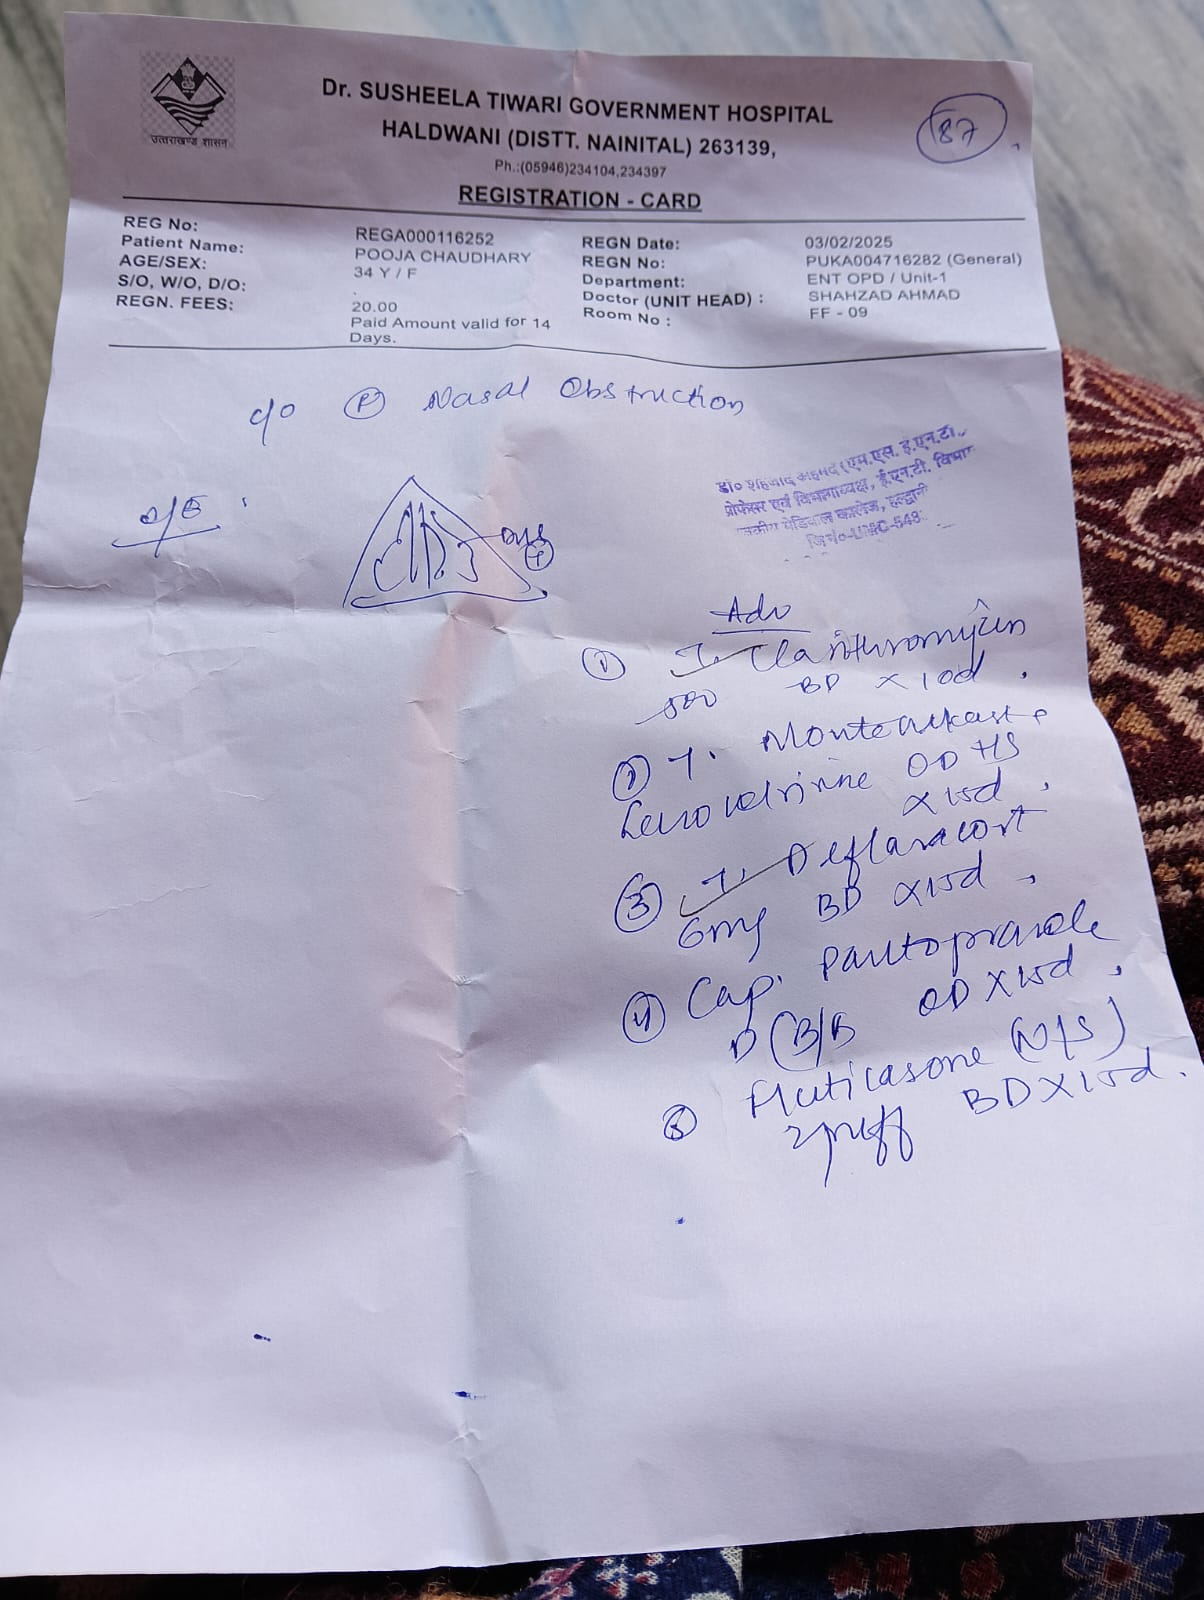 उत्तराखण्ड शासन
Dr. SUSHEELA TIWARI GOVERNMENT HOSPITAL
HALDWANI (DISTT. NAINITAL) 263139,
Ph.:(05946)234104,234397
REGISTRATION - CARD
87
REG No: REGA000116252 REGN Date: 03/02/2025
Patient Name: POOJA CHAUDHARY REGN No: PUKA004716282 (General)
AGE/SEX: 34 Y / F Department: ENT OPD / Unit-1
S/O, W/O, D/O: . Doctor (UNIT HEAD) : SHAHZAD AHMAD
REGN. FEES: 20.00 Room No : FF - 09
Paid Amount valid for 14
Days.
c/o (R) Nasal Obstruction
डा० शहजाद अहमद (एम.एस. ई.एन.टी.
प्रोफेसर एवं विभागाध्यक्ष, ई.एन.टी. विभाग
मेडिकल कालेज, हल्द्वानी
o/E :
DNS
(+)
Adv
① T. Clarithromycin
500 BD x 10d.
② T. Montelukast +
Levocetrizine OD HS
x 15d.
③ T. Deflazacort
6mg BD x 15d.
④ Cap. Pantoprazole
D (B/B OD x 15d.
⑤ Fluticasone (N/S)
2 puff BD x 15d.